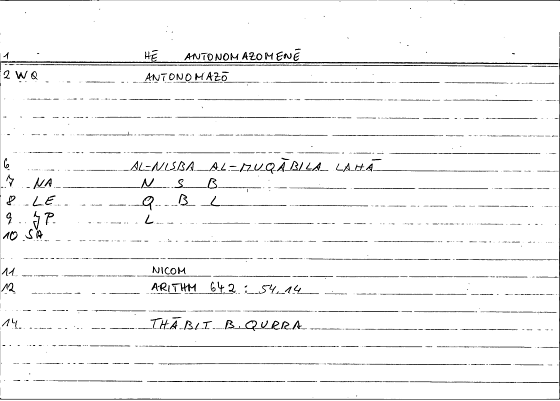 1 HĒ ANTONOMAZOMENĒ
2 WQ ANTONOMAZŌ
6 AL-NISBA AL-MUQĀBILA LAHĀ
7 NA N S B
8 LE Q B L
9 JP L
10 SA
11 NICOM
12 ARITHM 64.2 : 54.14
14 THĀBIT B. QURRA